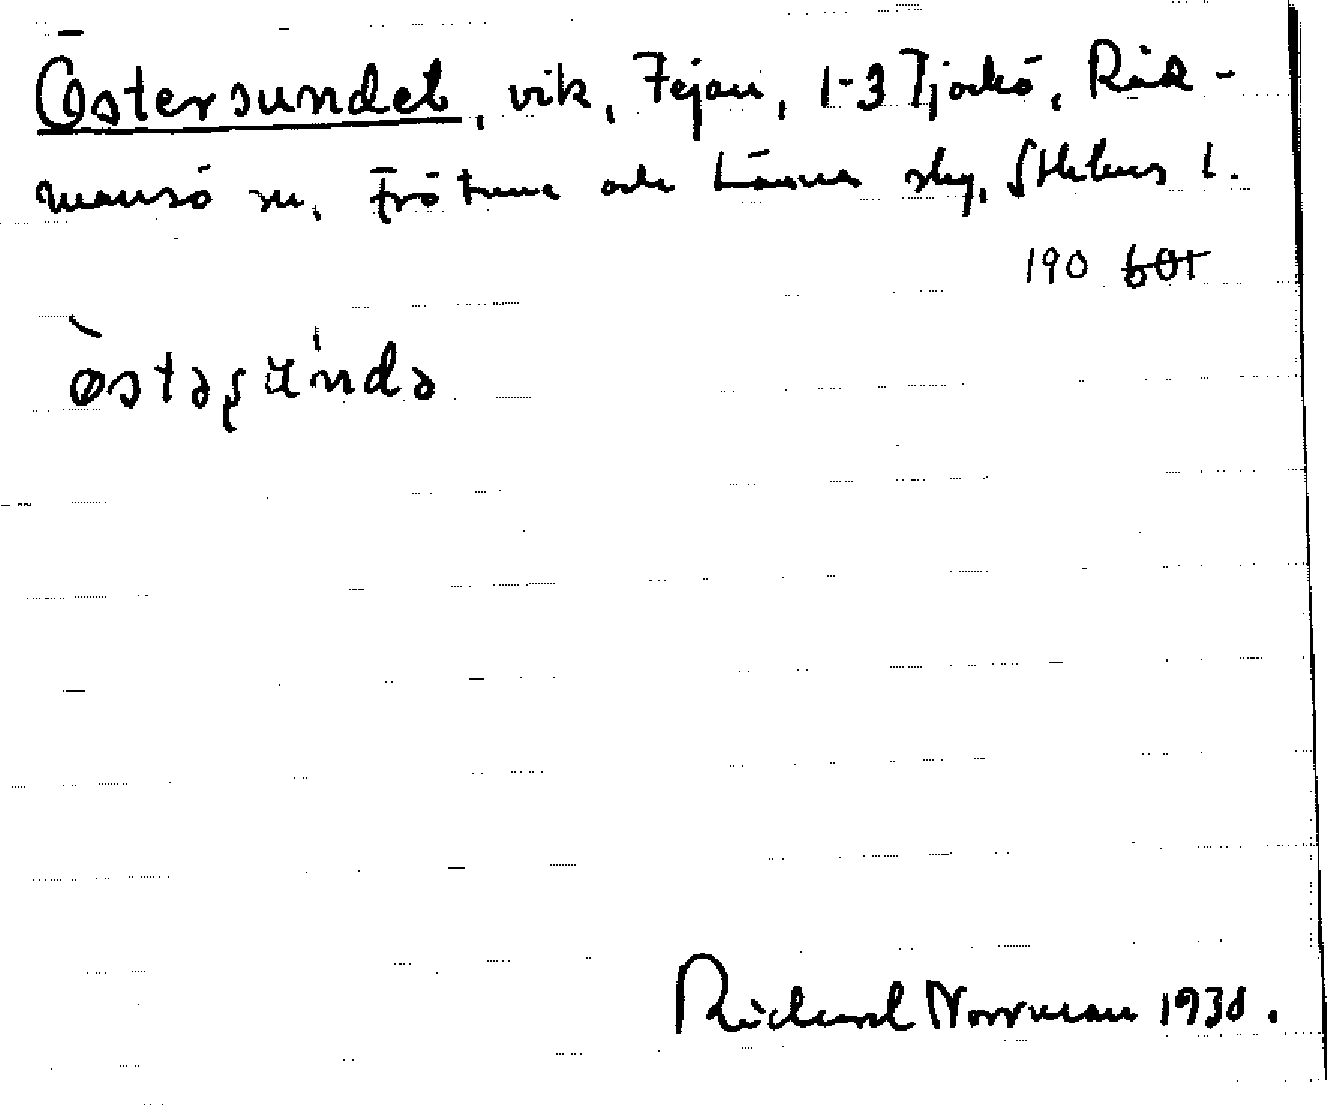 Östersundet, vik, Fejan, 1-3 Tjockö, Räd-
mansö sn, Frötuna och Länna skg, Sthlms l.
190
Richard Norrman 1938.